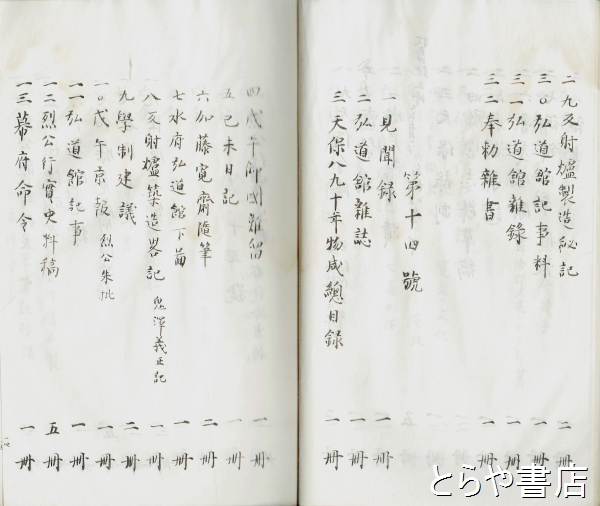 二九反射爐製造秘記 二冊
三〇弘道館記事料 一冊
三一弘道館雜錄 一冊
三二奉勅雜書 一冊
第十四號
一見聞錄 一冊
二弘道館雜誌 一冊
三天保八九十年物成總目録 一冊
四戊午御國難留 一冊
五己未日記 一冊
六加藤寛齋隨筆 二冊
七水府弘道館下畄 一冊
八反射爐築造畧記 鬼澤義正記 一冊
九學制建議 二冊
一〇戊午京報 烈公朱批 一冊
一一弘道館記事 一冊
一二烈公行實史料稿 五冊
一三幕府命令 一冊
とらや書店